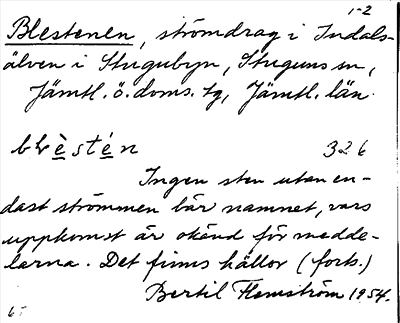 1-2
Blestenen, strömdrag i Indals-
älven i Stugubyn, Stuguns sn,
Jämtl. ö. doms. tg, Jämtl. län.
blèstén 326
Ingen sten utan en-
dast strömmen bär namnet, vars
uppkomst är okänd för medde-
larna. Det finns hällor (forts.)
Bertil Flemström 1954.